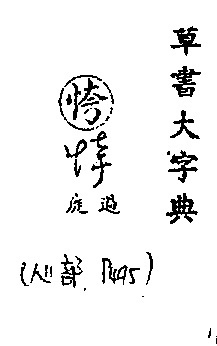 草書大字典
恗
過庭
(心部, P495)